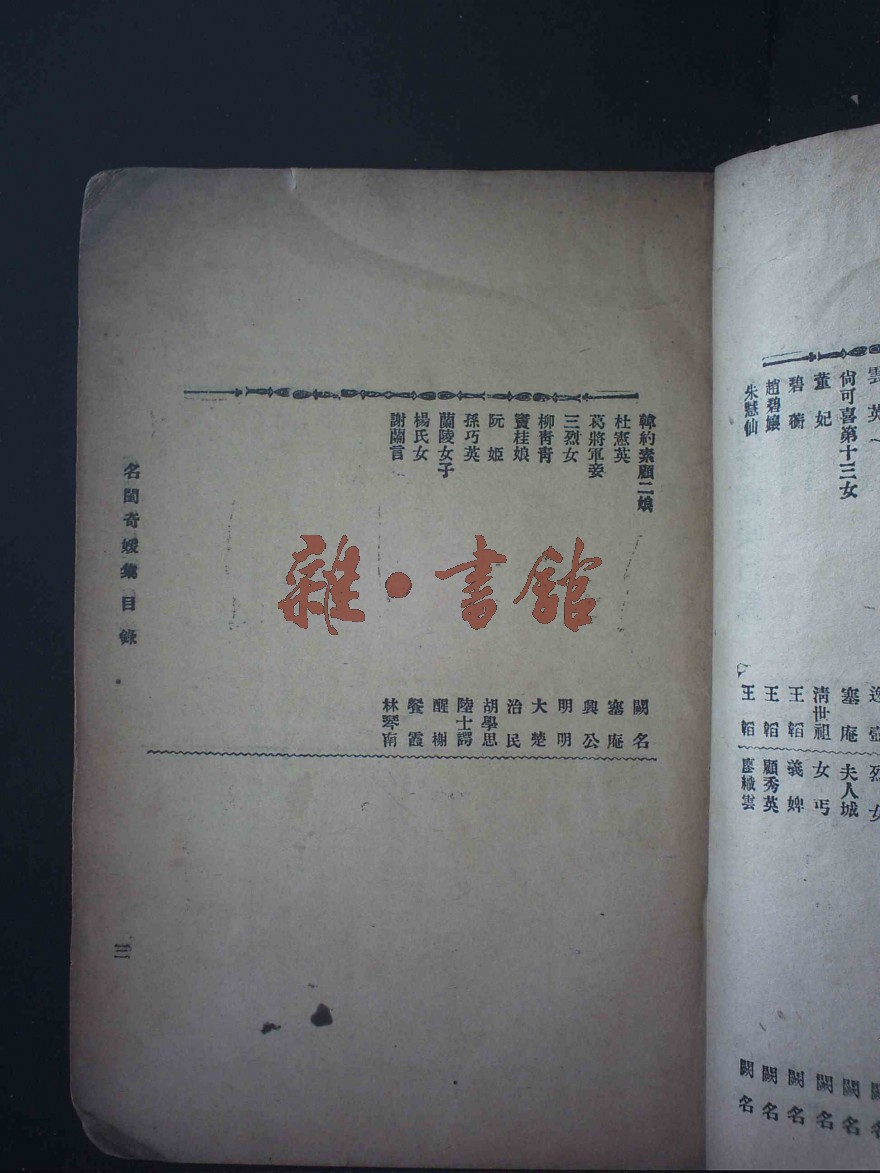 雲英
烈女
尙可喜第十三女 塞庵
夫人城 闕名
董妃 清世祖
女丐 闕名
碧蘅 王韜
義婢 闕名
趙碧孃 王韜
顧秀英 闕名
朱慧仙 王韜
廖織雲 闕名
韓約素顧二娘 闕名
杜憲英 塞庵
葛將軍妾 興公
三烈女 明明
柳青青 大楚
竇桂娘 治民
阮姬 胡學思
孫巧英 陸士諤
蘭陵女子 醒
楊氏女 餐霞
謝蘭言 林琴南
名閨奇媛集目錄
三
雜·書館